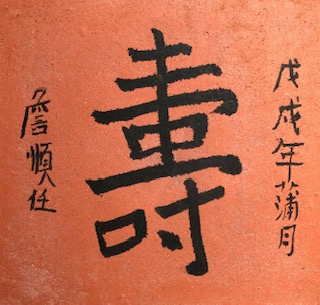 戊戌年蒲月
壽
詹順任